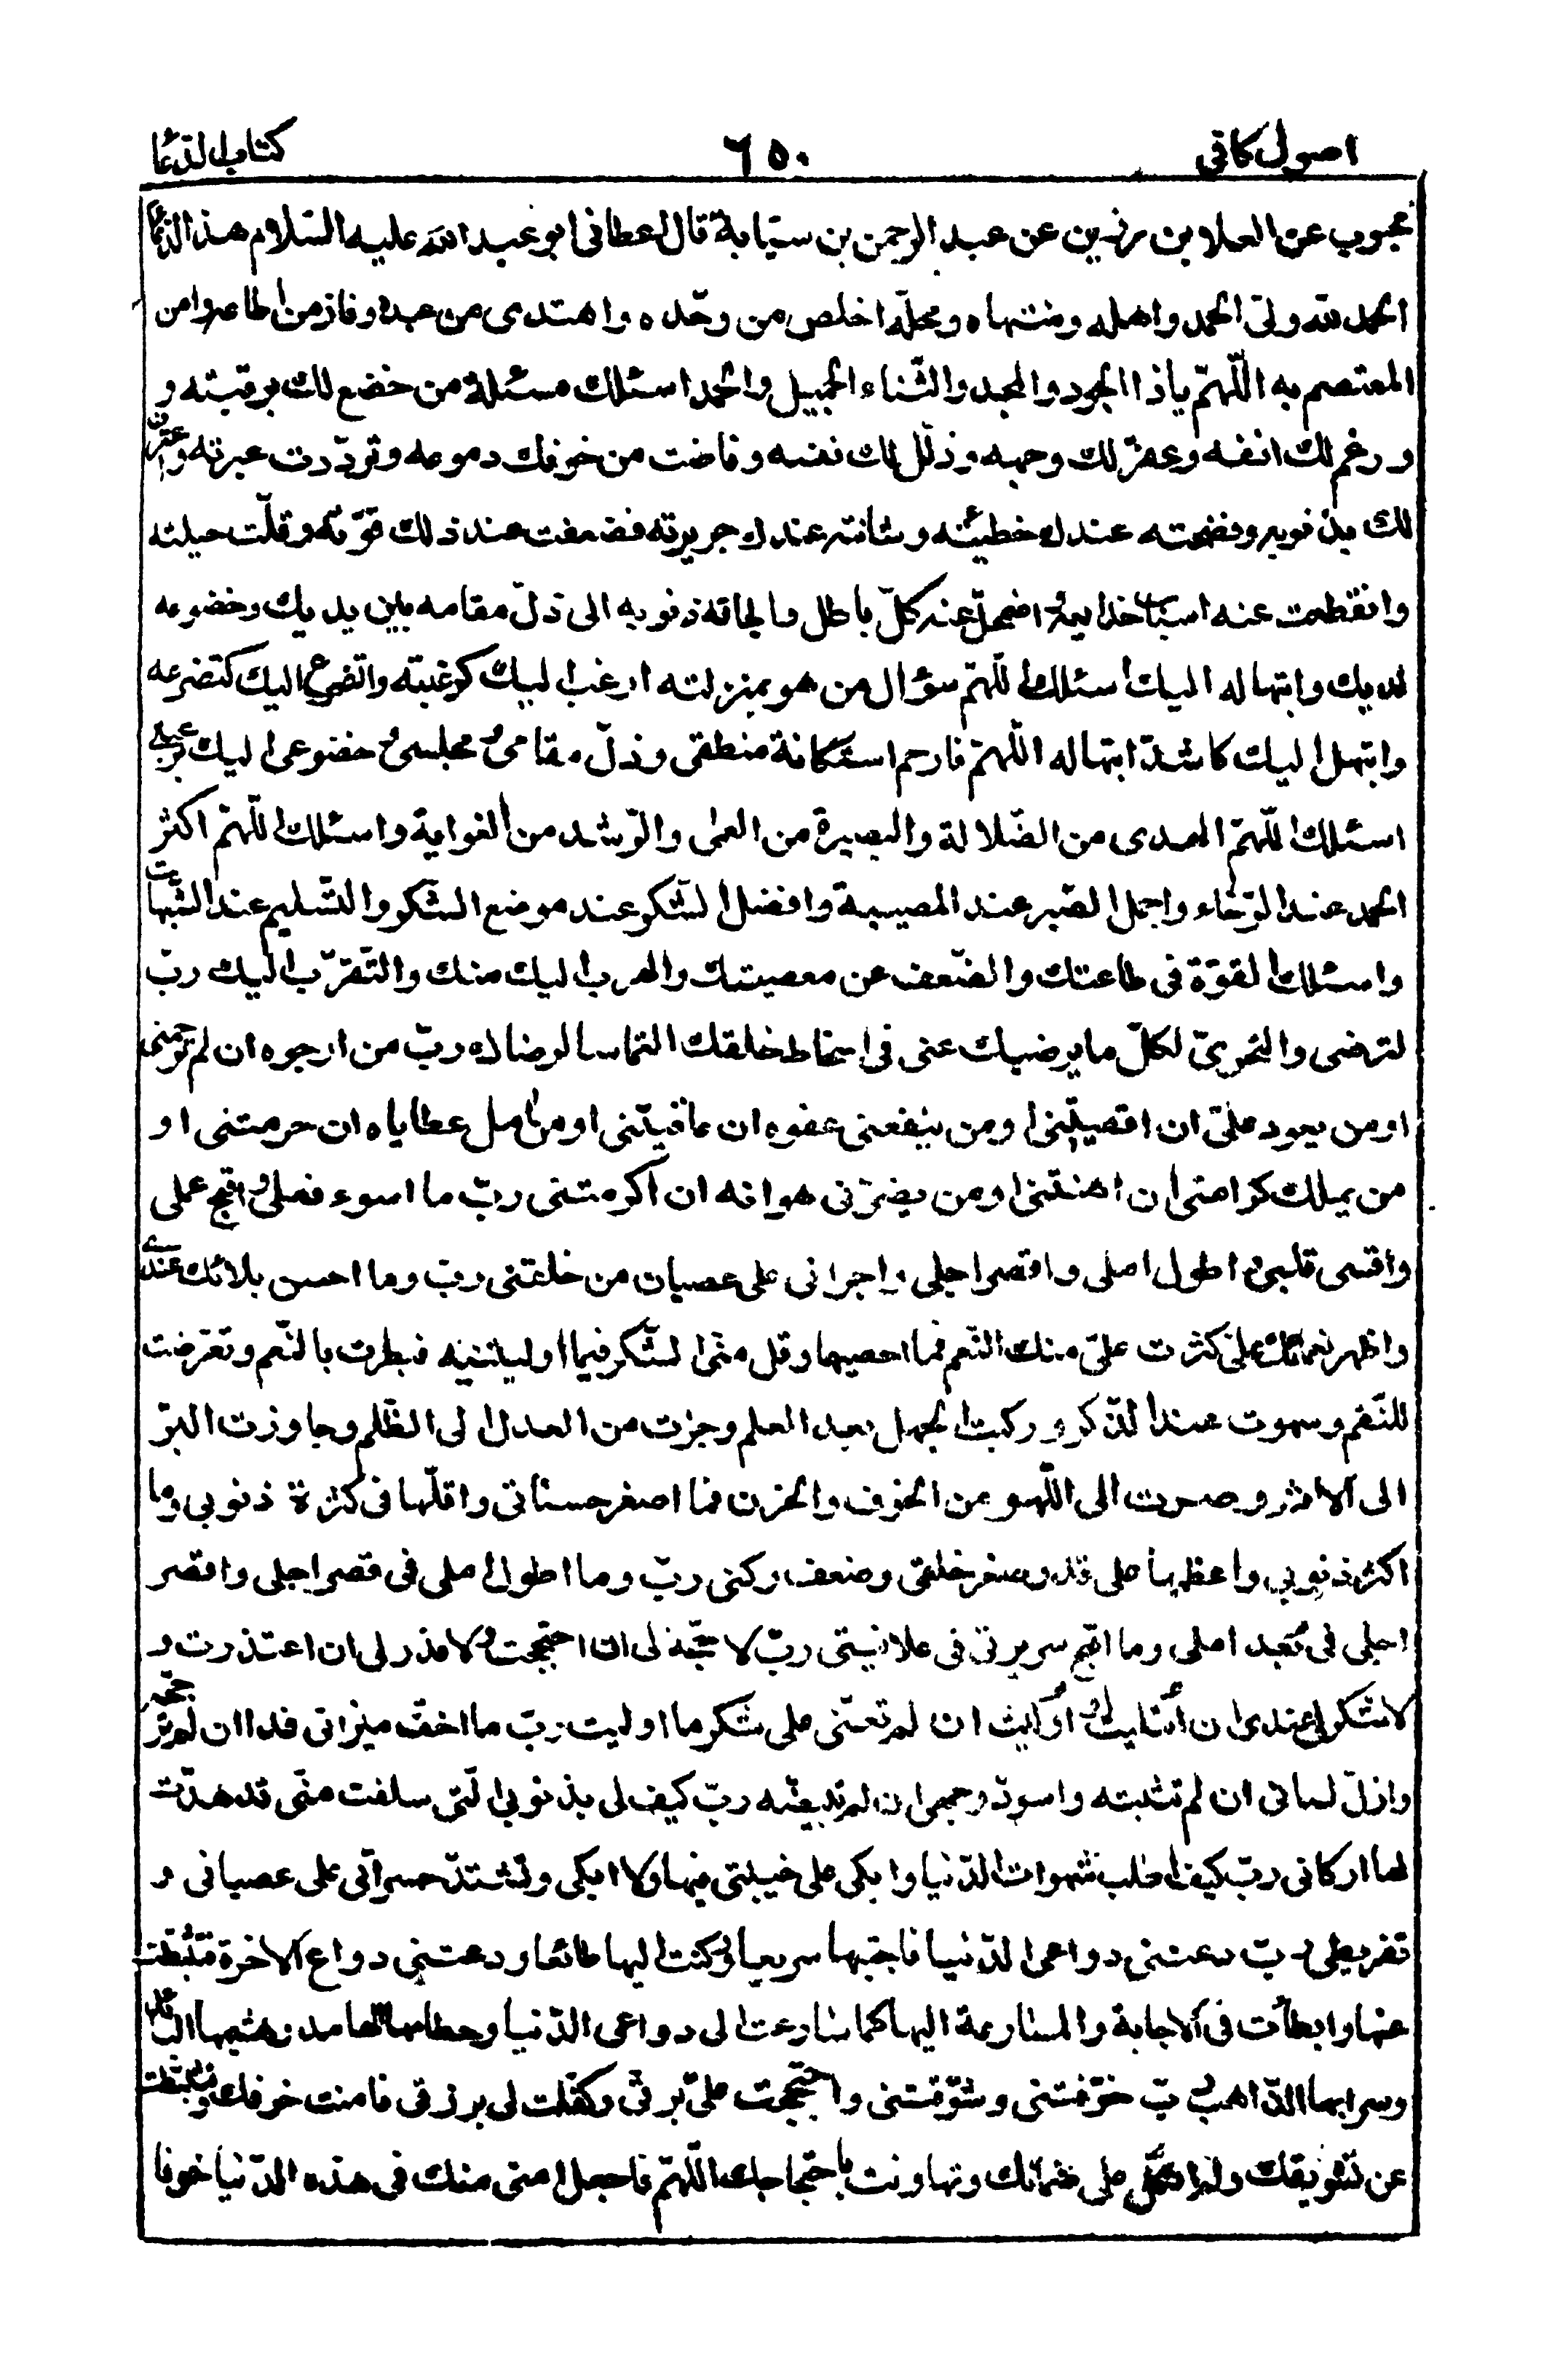 اصول كافى ٦٥٠ كتاب الدّعا
محبوب عن العلا بن رزين عن عبد الرحمن بن سيّابة قال اعطانى ابو عبد الله عليه السّلام هذا الدّعا
الحمد لله ولىّ الحمد واهله ومنتهاه ومحلّه اخلص من وحّده واهتدى من عبده وفاز من اطاعه وامن
المعتصم به اللّهمّ ياذا الجود والمجد والثّناء الجميل والحمد اسئلك مسئلة من خضع لك برقبته و
ورغم لك انفه وعفّر لك وجهه وذلّل لك نفسه وفاضت من خوفك دموعه وتردّدت عبرته واعترف
لك بذنوبه وفضحته عندك خطيئته وشانته عندك جريرته فضعفت عند ذلك قوّته وقلّت حيلته
وانقطعت عنه اسباب خدايعه واضمحلّ عنه كلّ باطل والجاته ذنوبه الى ذلّ مقامه بين يديك وخضوعه
لديك وابتهاله اليك اسئلك اللّهمّ سؤال من هو بمنزلته ارغب اليك كرغبته واتضرع اليك كتضرعه
وابتهل اليك كاشدّ ابتهاله اللّهمّ فارحم استكانة منطقى وذلّ مقامى ومجلسى وخضوعى اليك برقبتى
اسئلك اللّهمّ الهدى من الضّلالة والبصيرة من العمى والرّشد من الغواية واسئلك اللّهمّ اكثر
الحمد عند الرّخاء واجمل الصّبر عند المصيبة وافضل الشّكر عند موضع الشّكر والتّسليم عند الشّبهات
واسئلك القوّة فى طاعتك والضّعف عن معصيتك والهرب اليك منك والتّقرّب اليك ربّ
لترضى والتحرىّ لكلّ ما يرضيك عنى فى اسخاط خلقك التماسا لرضاك ربّ من ارجوه ان لم ترحمنى
او من يعود علىّ ان اقصيتنى او من ينفعنى عفوه ان عاقبتنى او من امل عطاياه ان حرمتنى او
من يملك كرامتى ان اهنتنى او من يضرّنى هوانه ان اكرمتنى ربّ ما اسوء فعلى واقبح عملى
واقسى قلبى واطول املى واقصر اجلى واجرانى على عصيان من خلقنى ربّ وما احسن بلائك عندى
واظهر نعمائك علىّ كثرت علىّ منك النّعم فما احصيها وقل منّى الشّكر فيما اوليتنيه فبطرت بالنّعم وتعرّضت
للنّقم وسهوت عند الذّكر و ركبت الجهل بعد العلم وجزت من العدل الى الظّلم وجاوزت البرّ
الى الاثم وصرت الى اللّهو من الخوف والحزن فما اصغر حسناتى واقلّها فى كثرة ذنوبى وما
اكثر ذنوبى واعظمها على قدر صغر خلقى وضعف ركنى ربّ وما اطول املى فى قصر اجلى واقصر
اجلى فى بعد املى وما اقبح سريرتى فى علانيتى ربّ لا حجّة لى ان احتججت ولا عذر لى ان اعتذرت و
لا شكر عندى ان ابتليت او اوليت ان لم تعنّى على شكر ما اوليت ربّ ما اخفّ ميزانى غدا ان لم ترجحه
وازلّ لسانى ان لم تثبته واسودّ وجهى ان لم تبيّضه ربّ كيف لى بذنوبى الّتى سلفت منّى قد هدّت
لها اركانى ربّ كيف اطلب شهوات الدّنيا وابكى على خيبتى فيها ولا ابكى وتشتدّ حسراتى على عصيانى و
تفريطى ربّ دعتنى دواعى الدّنيا فاجبتها سريعا وركنت اليها طائعا ودعتنى دواعى الاخرة فتثبّطت
عنها وابطأت فى الاجابة والمسارعة اليها كما سارعت الى دواعى الدّنيا وحطامها الهامد وهشيمها البائد
وسرابها الذّاهب ربّ خوّفتنى وشوّقتنى واحتججت علىّ برقّى وكفّلت لى برزقى فامنت خوفك وتثبّطت
عن تشويقك ولم اتّكل على ضمانك وتهاونت باحتجاجك اللّهمّ فاجعل امنى منك فى هذه الدّنيا خوفا